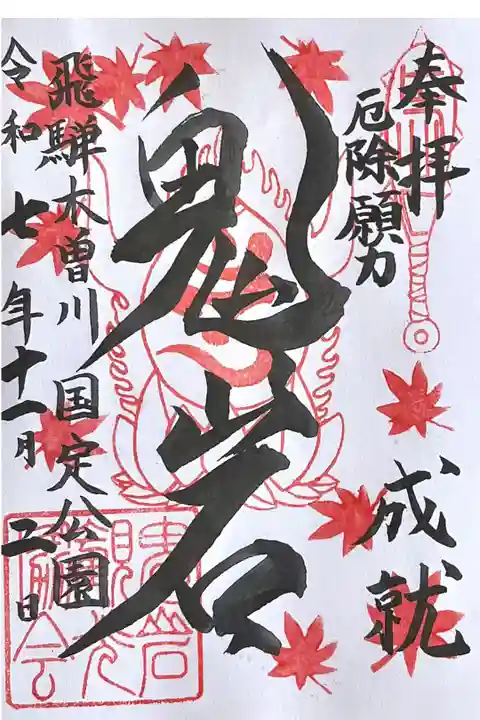 奉拝
厄除願力
成就
鬼岩
飛騨木曽川国定公園
令和七年十一月二日
鬼岩
観光
協会